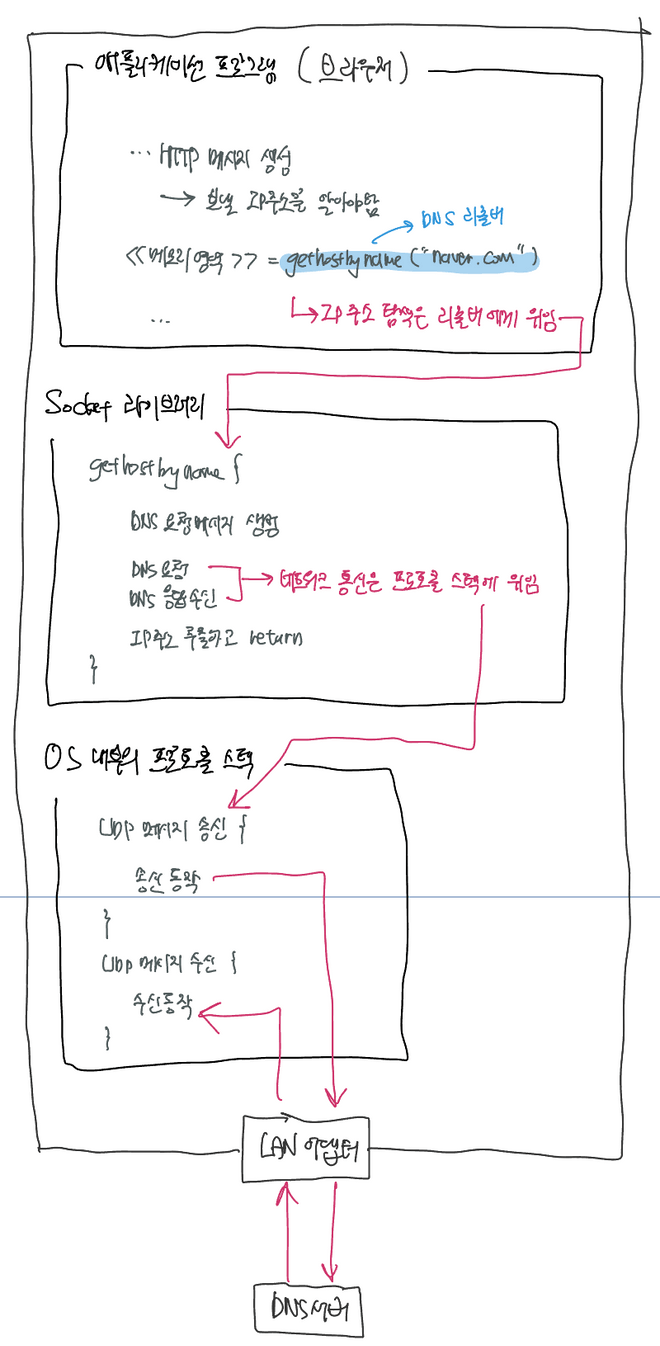 애플리케이션 프로그램 (브라우저)
... HTTP 메시지 생성
→ 보낼 IP주소를 알아야함
DNS 리졸버
<<메모리 영역>> = gethostbyname ("naver.com")
↳ IP주소 탐색은 리졸버에게 위임
...
Socket 라이브러리
gethostbyname {
DNS 요청메시지 생성
DNS 요청
DNS 응답수신
→ 네트워크 통신은 프로토콜 스택에 위임
IP주소 추출하고 return
}
OS 내부의 프로토콜 스택
UDP 메시지 송신 {
송신동작
}
UDP 메시지 수신 {
수신동작
}
LAN 어댑터
DNS서버